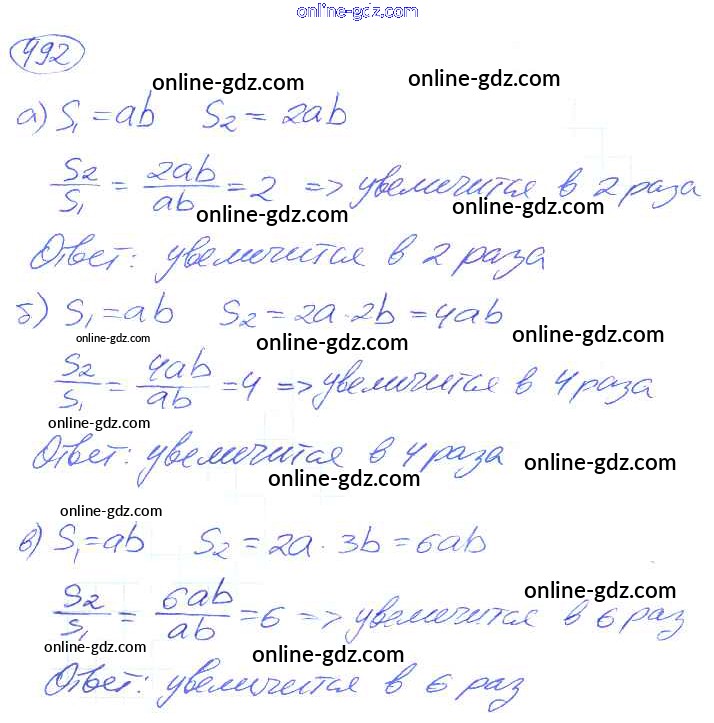 online-gdz.com
492
online-gdz.com online-gdz.com
а) S₁ = ab S₂ = 2ab
S₂/S₁ = 2ab/ab = 2 => увеличится в 2 раза
online-gdz.com online-gdz.com
Ответ: увеличится в 2 раза
б) S₁ = ab S₂ = 2a · 2b = 4ab
online-gdz.com online-gdz.com online-gdz.com
S₂/S₁ = 4ab/ab = 4 => увеличится в 4 раза
online-gdz.com
Ответ: увеличится в 4 раза
online-gdz.com online-gdz.com
online-gdz.com
в) S₁ = ab S₂ = 2a · 3b = 6ab
online-gdz.com
S₂/S₁ = 6ab/ab = 6 => увеличится в 6 раз
online-gdz.com
Ответ: увеличится в 6 раз